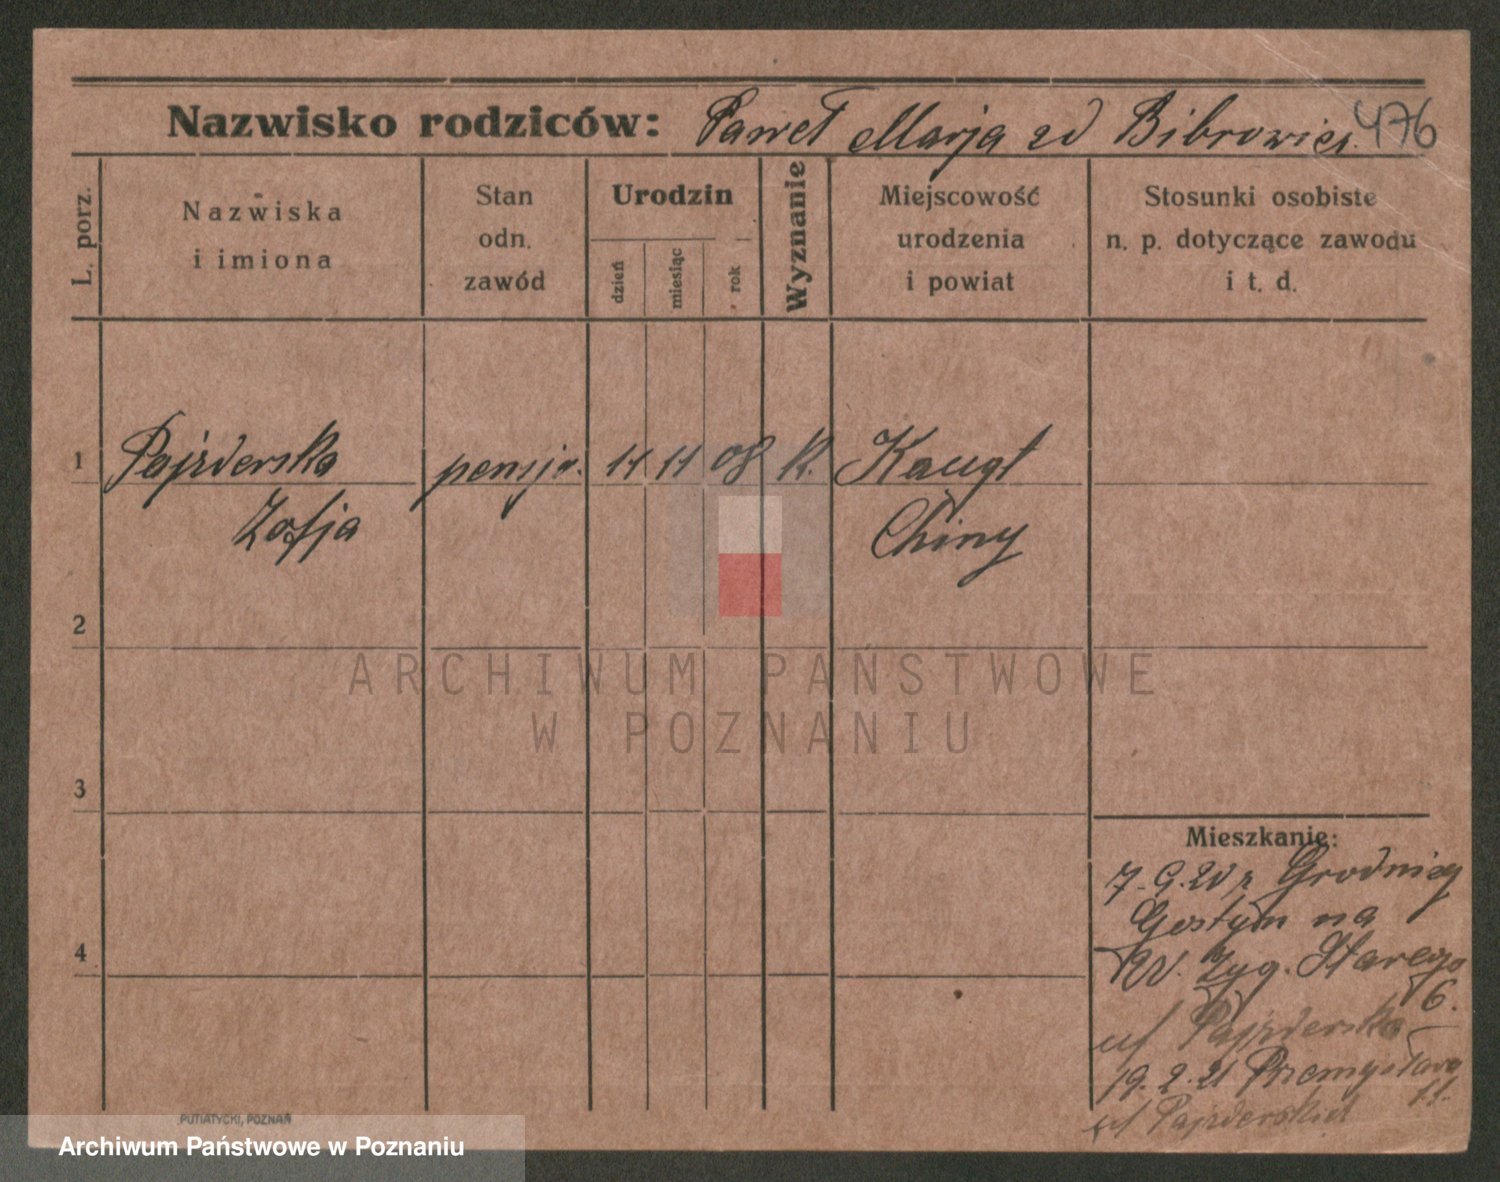 476
Nazwisko rodziców: Paweł Marja zd Bibrowicz
L. porz.
Nazwiska
i imiona
Stan
odn.
zawód
Urodzin
dzień
miesiąc
rok
Wyznanie
Miejscowość
urodzenia
i powiat
Stosunki osobiste
n. p. dotyczące zawodu
i t. d.
1
Pajzderska
Zofja
pensja.
11 11 08 k.
Chiny
2
ARCHIWUM PAŃSTWOWE
W POZNANIU
3
4
Mieszkanie:
7.9.20 z
Gostyn na
W. Zyg. Starego
6.
Pajzderska
19.2.21 Przemysława
11.
PUTIATYCKI, POZNAŃ
Archiwum Państwowe w Poznaniu